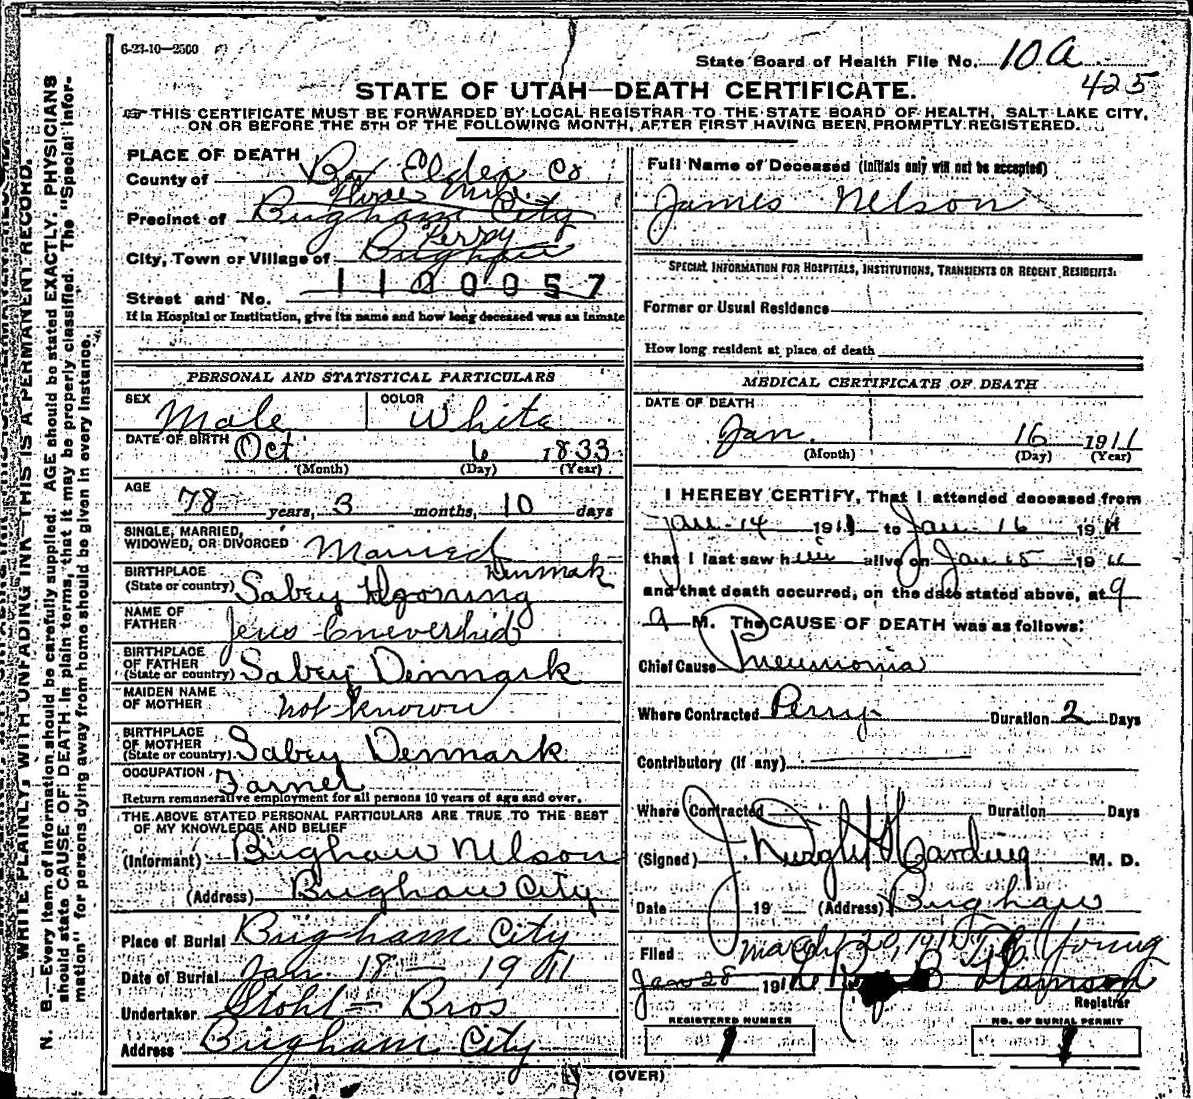 6-23-10—2500
State Board of Health File No. 10 a
425
STATE OF UTAH—DEATH CERTIFICATE.
THIS CERTIFICATE MUST BE FORWARDED BY LOCAL REGISTRAR TO THE STATE BOARD OF HEALTH, SALT LAKE CITY,
ON OR BEFORE THE 5TH OF THE FOLLOWING MONTH, AFTER FIRST HAVING BEEN PROMPTLY REGISTERED.
WRITE PLAINLY, WITH UNFADING INK—THIS IS A PERMANENT RECORD.
N. B.—Every item of information should be carefully supplied. AGE should be stated EXACTLY. PHYSICIANS
should state CAUSE OF DEATH in plain terms, that it may be properly classified. The "Special Infor-
mation" for persons dying away from home should be given in every instance.
PLACE OF DEATH
County of Box Elder Co
Precinct of Brigham City
Perry
City, Town or Village of Brigham
Street and No. 1100057
If in Hospital or Institution, give its name and how long deceased was an inmate
PERSONAL AND STATISTICAL PARTICULARS
SEX Male COLOR White
DATE OF BIRTH Oct 6 1833
(Month) (Day) (Year)
AGE 78 years, 3 months, 10 days
SINGLE, MARRIED,
WIDOWED, OR DIVORCED Married
BIRTHPLACE Denmark
(State or country) Sabey Hjorring
NAME OF
FATHER Jens
BIRTHPLACE
OF FATHER
(State or country) Sabey Denmark
MAIDEN NAME
OF MOTHER not known
BIRTHPLACE
OF MOTHER
(State or country) Sabey Denmark
OCCUPATION Farmer
Return remunerative employment for all persons 10 years of age and over.
THE ABOVE STATED PERSONAL PARTICULARS ARE TRUE TO THE BEST
OF MY KNOWLEDGE AND BELIEF
(Informant) Brigham Nelson
(Address) Brigham City
Place of Burial Brigham City
Date of Burial Jan. 18 — 1911
Undertaker Stohl — Bros
Address Brigham City
Full Name of Deceased (Initials only will not be accepted)
James Nelson
SPECIAL INFORMATION FOR HOSPITALS, INSTITUTIONS, TRANSIENTS OR RECENT RESIDENTS:
Former or Usual Residence
How long resident at place of death
MEDICAL CERTIFICATE OF DEATH
DATE OF DEATH
Jan. 16 1911
(Month) (Day) (Year)
I HEREBY CERTIFY, That I attended deceased from
Jan - 14 1911 to Jan - 16 1911
that I last saw him alive on Jan 15 1911
and that death occurred, on the date stated above, at 9
a M. The CAUSE OF DEATH was as follows:
Chief Cause Pneumonia
Where Contracted Perry Duration 2 Days
Contributory (if any)
Where Contracted Duration Days
(Signed) J. Harding M. D.
Date 19 (Address) Brigham
Filed March 20, Young
Jan 28 191 B
Registrar
REGISTERED NUMBER
1
NO. OF BURIAL PERMIT
1
(OVER)